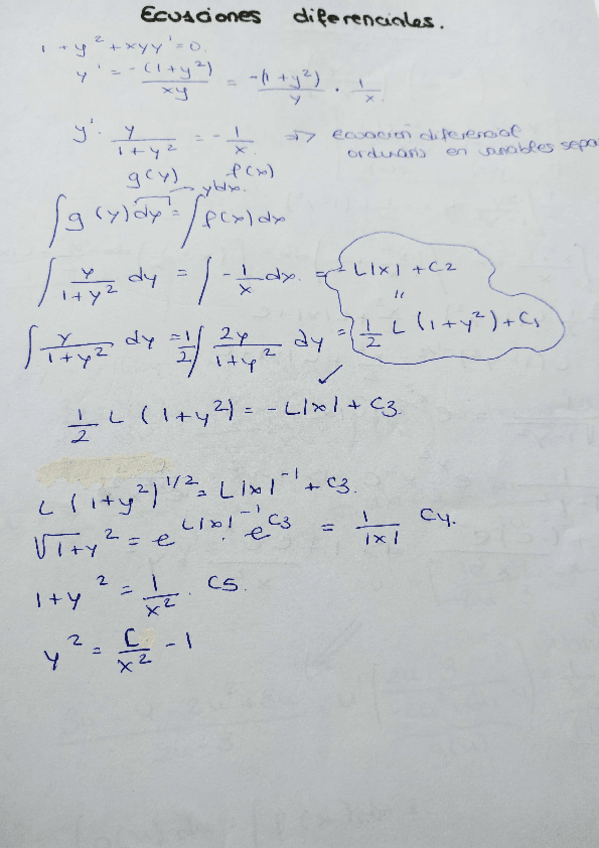 Ecuaciones diferenciales.
1 + y² + xyy' = 0.
y' = -(1+y²)/xy = -(1+y²)/y · 1/x.
y' · y/(1+y²) = -1/x. => ecuacion diferencial
ordinaria en variables sepa
g(y) f(x)
y'dx.
∫g(y)dy = ∫f(x)dx
∫ y/(1+y²) dy = ∫ -1/x dx. = -L|x| + C2
"
∫ y/(1+y²) dy = 1/2 ∫ 2y/(1+y²) dy = 1/2 L(1+y²) + C1
1/2 L(1+y²) = -L|x| + C3.
L(1+y²)^1/2 = L|x|^-1 + C3.
√1+y² = e^L|x|^-1 · e^C3 = 1/|x| C4.
1+y² = 1/x² . C5.
y² = C/x² - 1